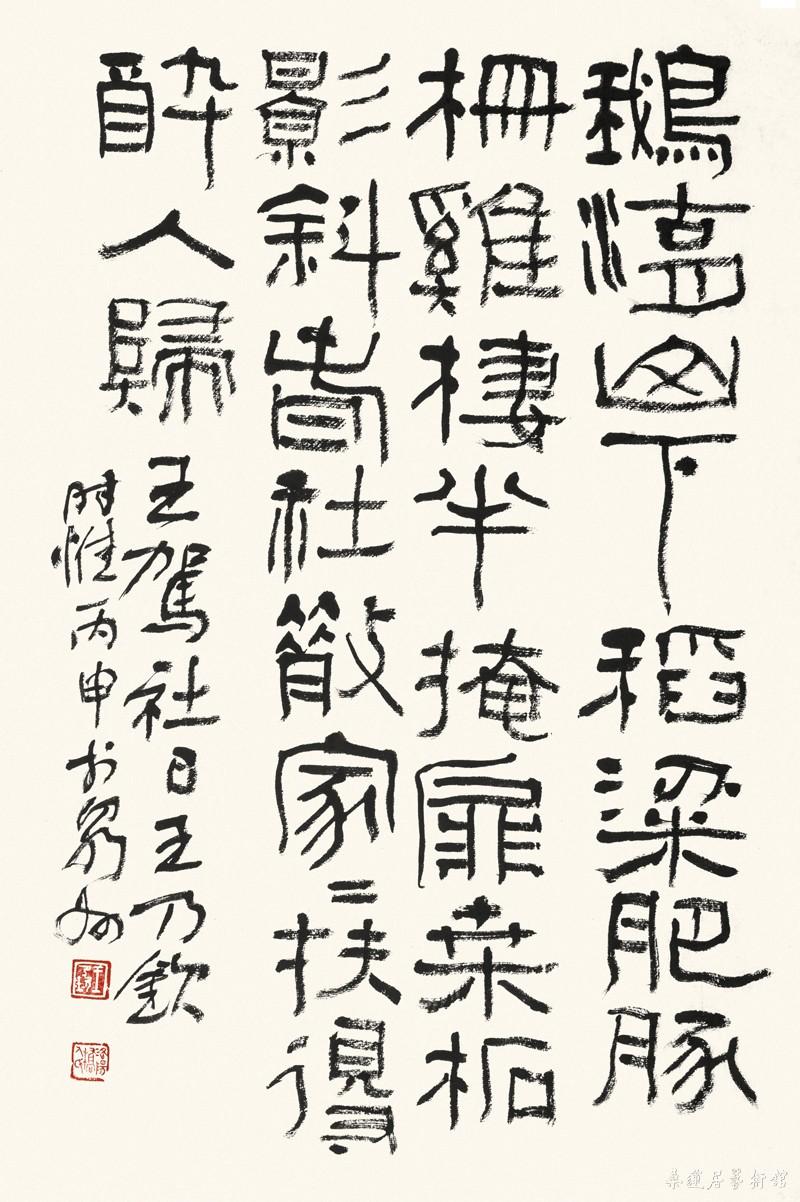 鵝湖山下稻粱肥豚
柵雞棲半掩扉桑柘
影斜春社散家〻扶得
醉人歸
王駕社日王乃欽
时惟丙申於泉州
桑蓮居藝術館